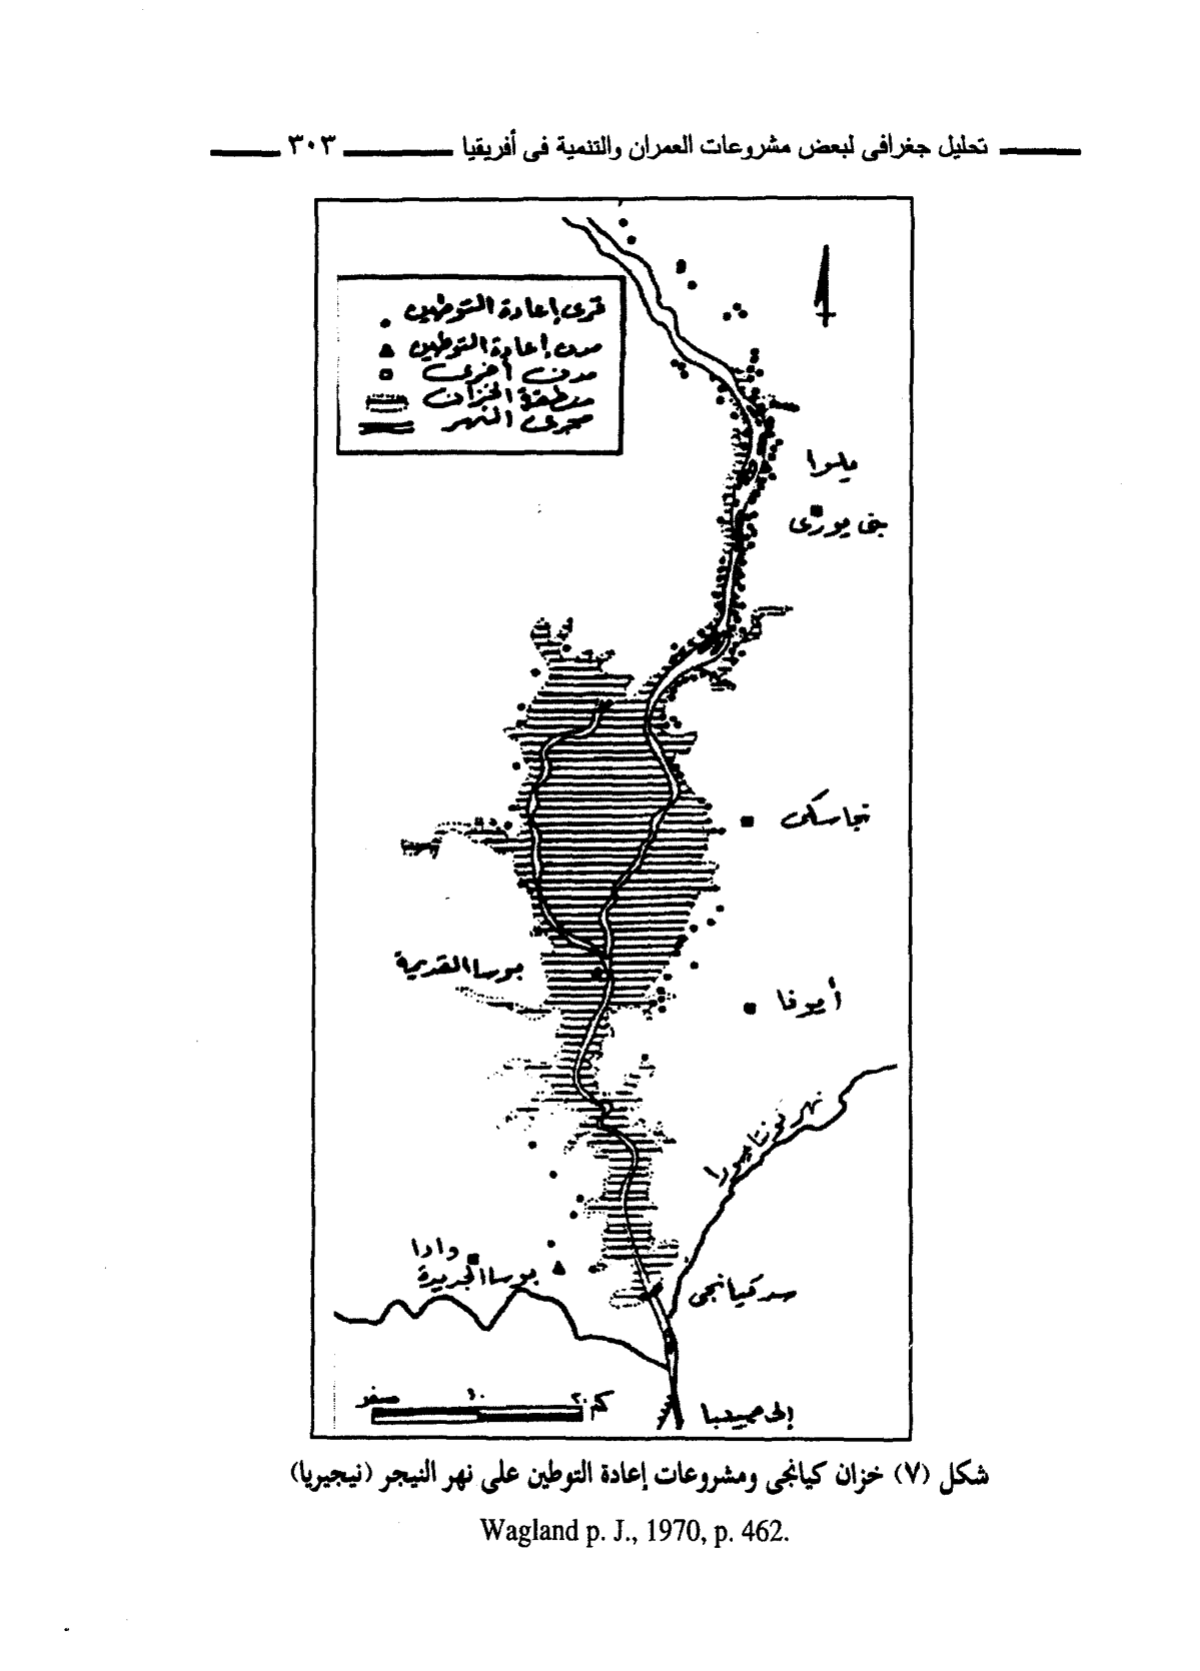 تحليل جغرافى لبعض مشروعات العمران والتنمية فى أفريقيا ٣٠٣
قرى إعادة التوطين
مدن إعادة التوطين
مدن أخرى
منطقة الخزان
مجرى النهر
يلوا
بنى يورى
نجاسكى
بوسا القديمة
أيوفا
نهر
وادا
بوسا الجديدة
سد كيانجى
صفر ١٠ ٢٠ كم
إلى
شكل (٧) خزان كيانجى ومشروعات إعادة التوطين على نهر النيجر (نيجيريا)
Wagland p. J., 1970, p. 462.